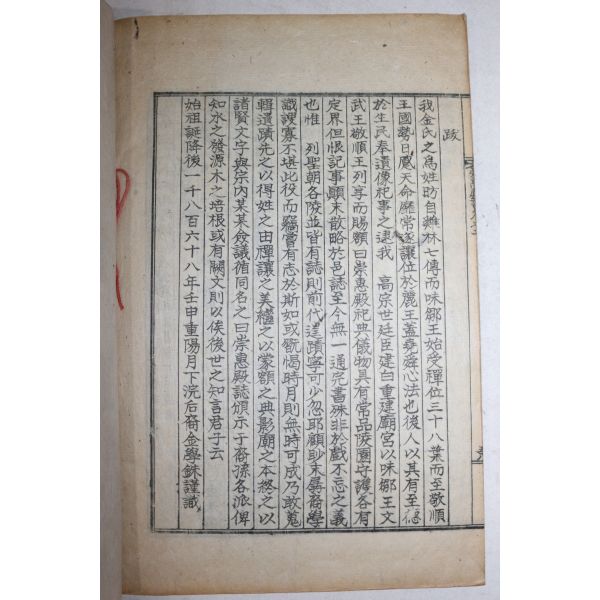 跋
我金氏之爲姓昉自雞林七傳而味鄒王始受禪位三十八葉而至敬順
王國勢日蹙天命靡常遂讓位於麗王蓋堯舜心法也後人以其有至德
於生民奉遺像祀事之逮我 高宗世廷臣建白重建廟宮以味鄒王文
武王敬順王列享而賜額曰崇惠殿祀典儀物具有常品陵園守護各有
定界但恨記事顚末散略於邑誌至今無一通完書殊非於戲不忘之義
也惟 列聖朝各陵並皆有誌則前代遺蹟寧可少忽耶顧眇末孱裔學
識謏寡不堪此役而竊嘗有志於斯如或翫愒時月則無時可成乃敢蒐
輯遺蹟先之以得姓之由禪讓之美繼之以蒙額之典影廟之本終之以
諸賢文字與宗內某某僉議循同名之曰崇惠殿誌頒示于裔孫各派俾
知水之發源木之培根或有闕文則以俟後世之知言君子云
始祖誕降後一千八百六十八年壬申重陽月下浣后裔金學銖謹識